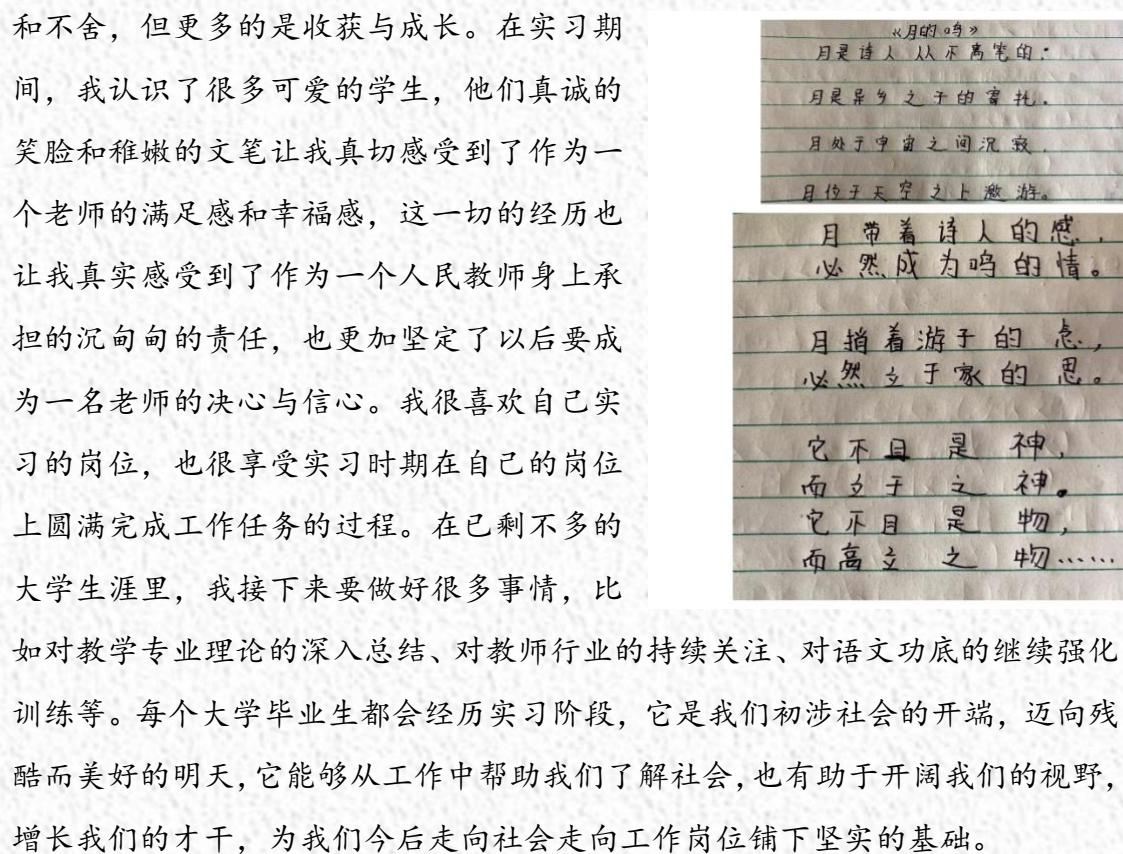 和不舍，但更多的是收获与成长。在实习期
间，我认识了很多可爱的学生，他们真诚的
笑脸和稚嫩的文笔让我真切感受到了作为一
个老师的满足感和幸福感，这一切的经历也
让我真实感受到了作为一个人民教师身上承
担的沉甸甸的责任，也更加坚定了以后要成
为一名老师的决心与信心。我很喜欢自己实
习的岗位，也很享受实习时期在自己的岗位
上圆满完成工作任务的过程。在已剩不多的
大学生涯里，我接下来要做好很多事情，比
如对教学专业理论的深入总结、对教师行业的持续关注、对语文功底的继续强化
训练等。每个大学毕业生都会经历实习阶段，它是我们初涉社会的开端，迈向残
酷而美好的明天，它能够从工作中帮助我们了解社会，也有助于开阔我们的视野，
增长我们的才干，为我们今后走向社会走向工作岗位铺下坚实的基础。
《月的鸣》
月是诗人从不离笔的；
月是异乡之子的寄托。
月处于宇宙之间沉寂，
月位于天空之上遨游。
月带着诗人的感，
必然成为鸣的情。
月捎着游子的念，
必然立于家的思。
它不且是神，
而立于之神。
它不目是物，
而高立之物……